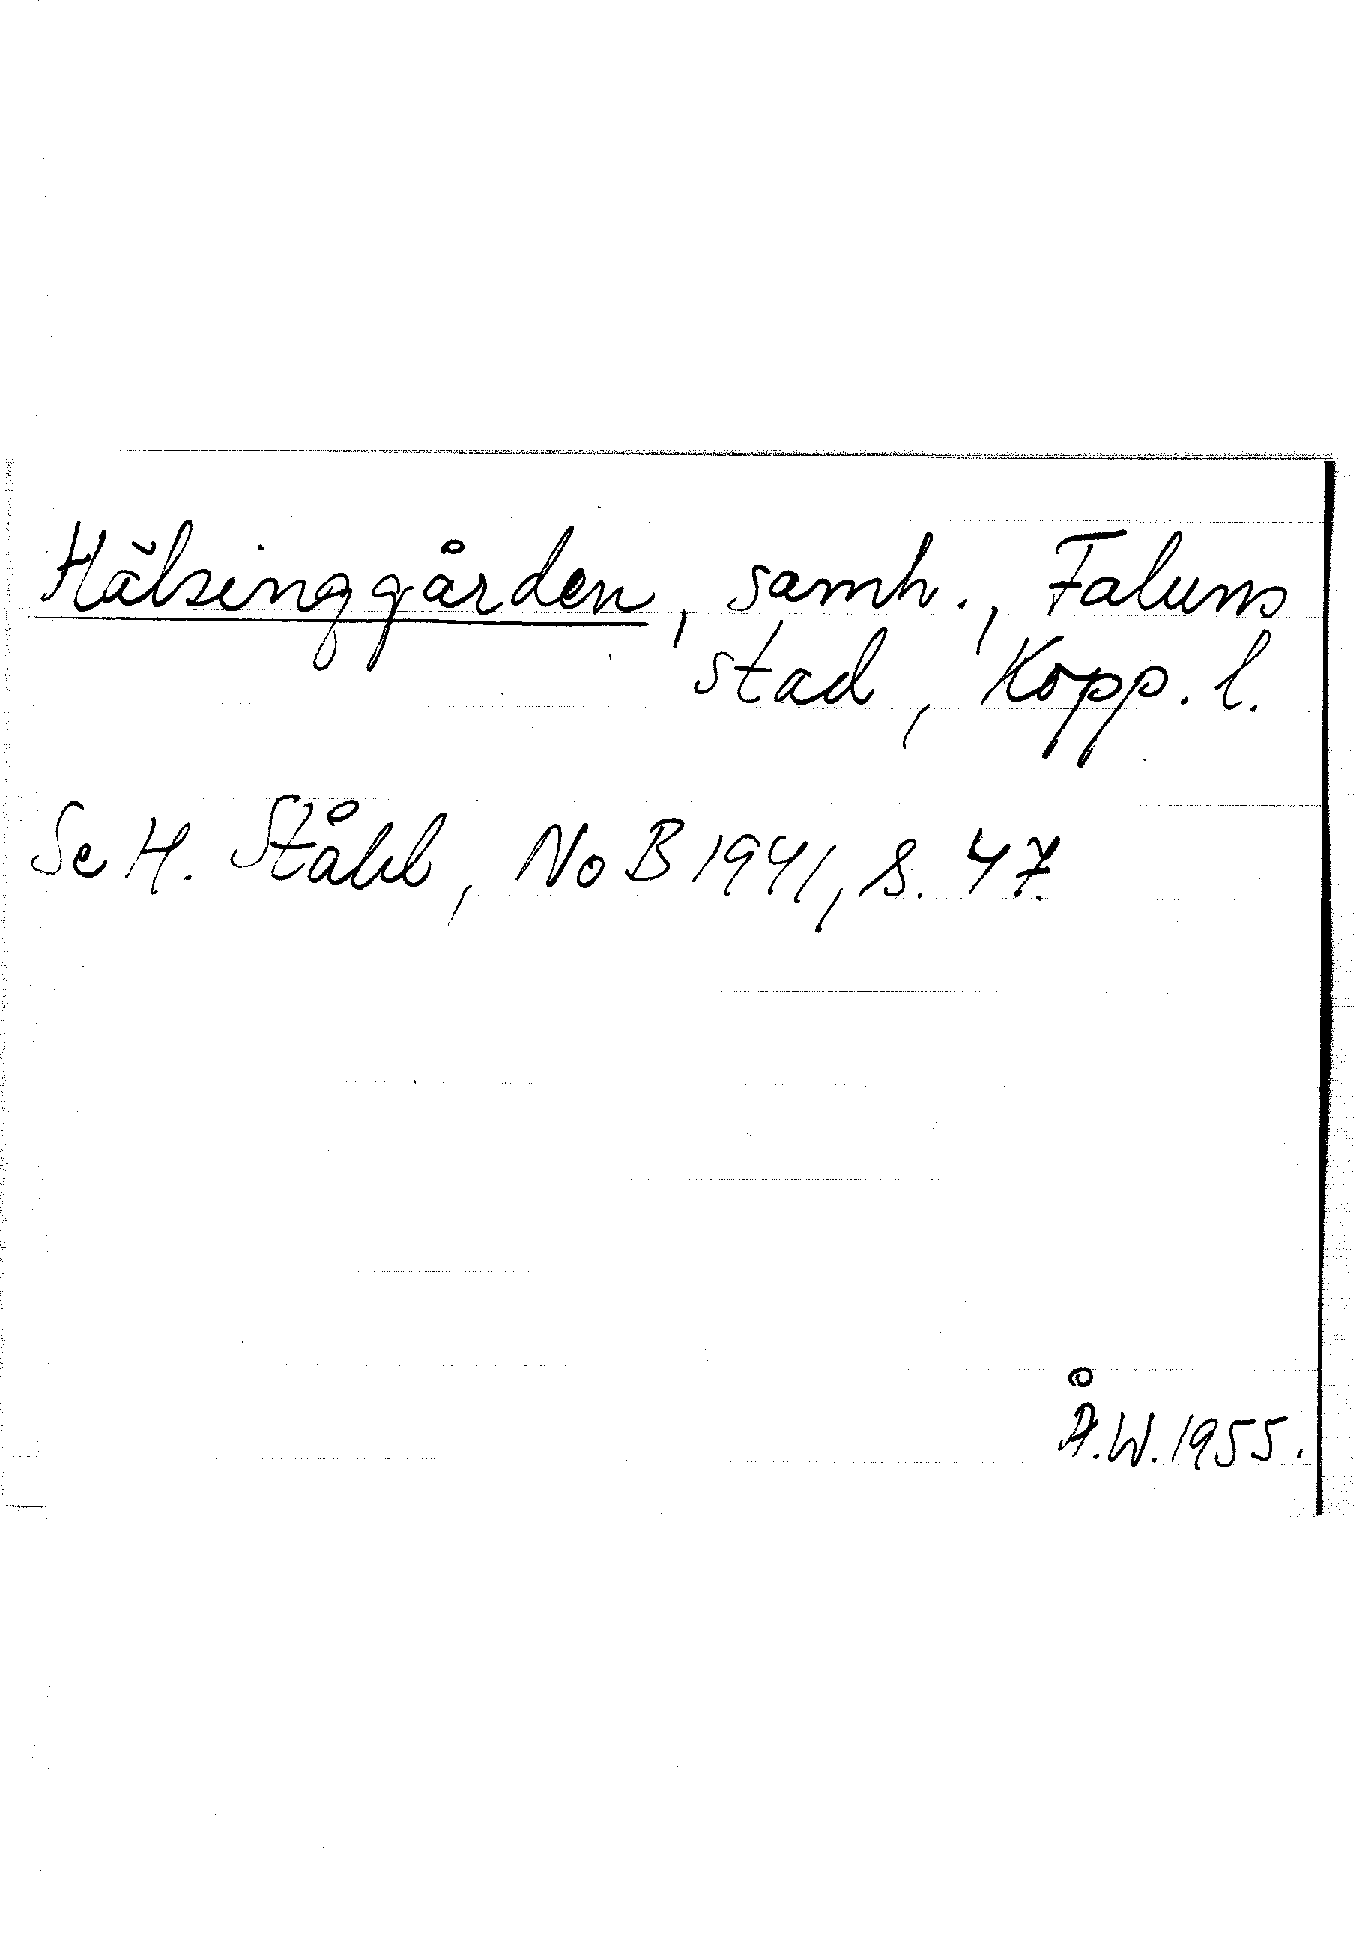 Hälsinggården, samh., Faluns
stad, Kopp. l.
Se H. Ståhl, NoB 1941, s. 47.
Å.W. 1955.